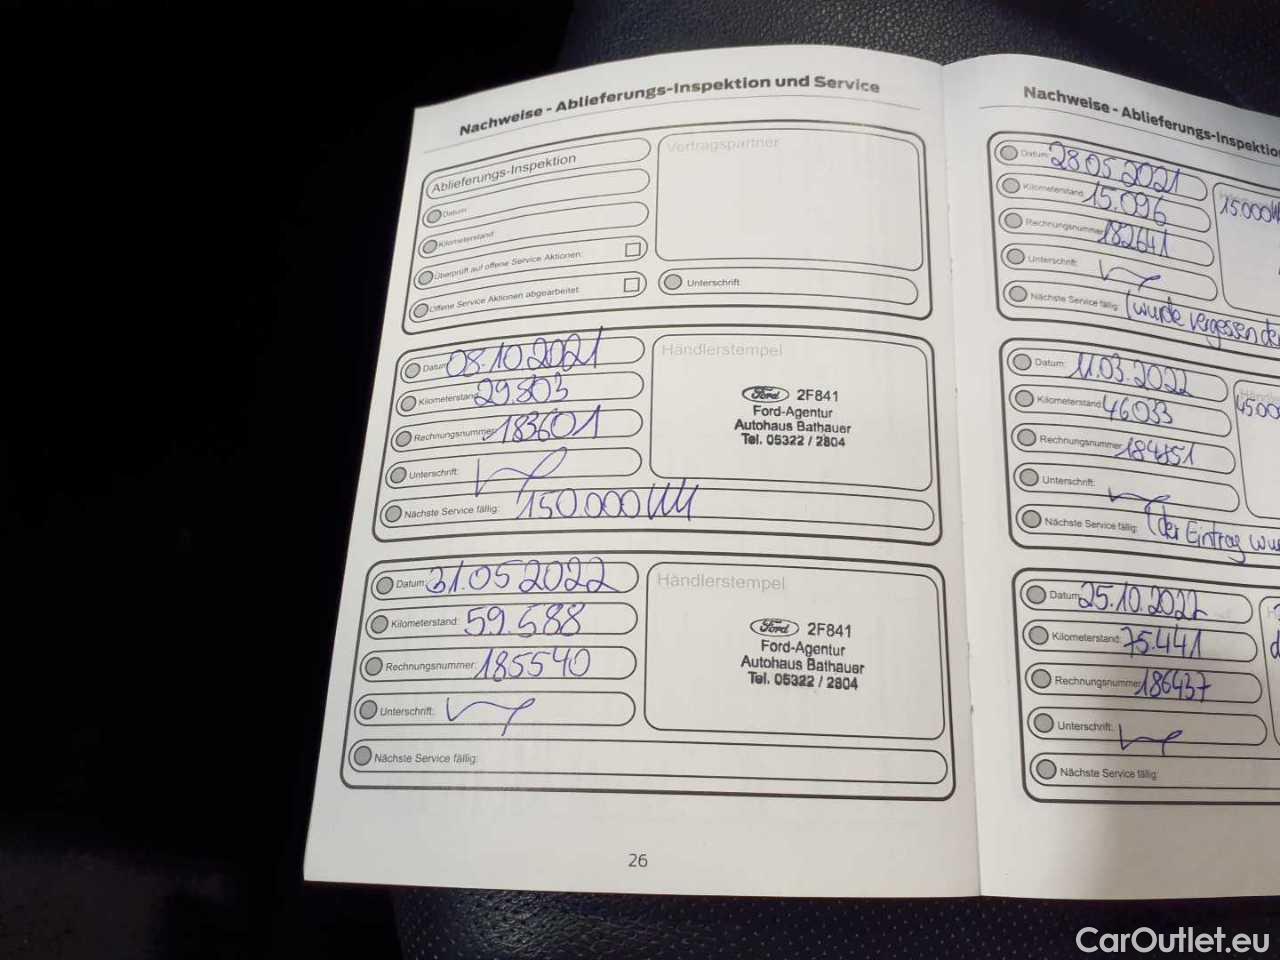 Nachweise - Ablieferungs-Inspektion und Service
Ablieferungs-Inspektion
Datum
Kilometerstand:
Überprüft auf offene Service Aktionen:
Offene Service Aktionen abgearbeitet:
Vertragspartner
Unterschrift:
Datum: 08.10.2021
Kilometerstand: 29.803
Rechnungsnummer: 183601
Unterschrift:
Nächste Service fällig: 150.000
Händlerstempel
Ford 2F841
Ford-Agentur
Autohaus Bathauer
Tel. 05322 / 2804
Datum: 31.05.2022
Kilometerstand: 59.588
Rechnungsnummer: 185540
Unterschrift:
Nächste Service fällig:
Händlerstempel
Ford 2F841
Ford-Agentur
Autohaus Bathauer
Tel. 05322 / 2804
26
Nachweise - Ablieferungs-Inspektion
Datum: 28.05.2021
Kilometerstand: 15.096
Rechnungsnummer: 182641
Unterschrift:
Nächste Service fällig: (wurde vergessen
15.000
Datum: 11.03.2022
Kilometerstand: 46033
Rechnungsnummer: 184851
Unterschrift:
Nächste Service fällig: (der Eintrag
Datum: 25.10.2022
Kilometerstand: 75.441
Rechnungsnummer: 186437
Unterschrift:
Nächste Service fällig:
CarOutlet.eu